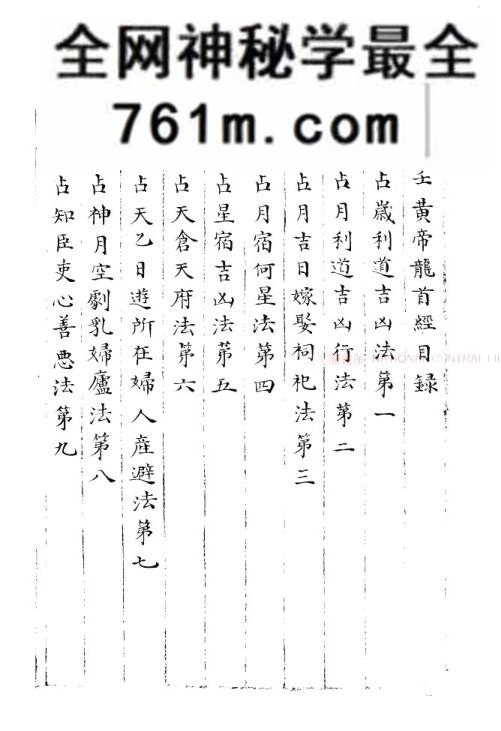 全网神秘学最全
761m.com
壬黃帝龍首經目録
占歲利道吉凶法第一
占月利道吉凶行法第二
占月吉日嫁娶祠祀法第三
占月宿何星法第四
占星宿吉凶法第五
占天倉天府法第六
占天乙日遊所在婦人産避法第七
占神月空劇乳婦廬法第八
占知臣吏心善悪法第九